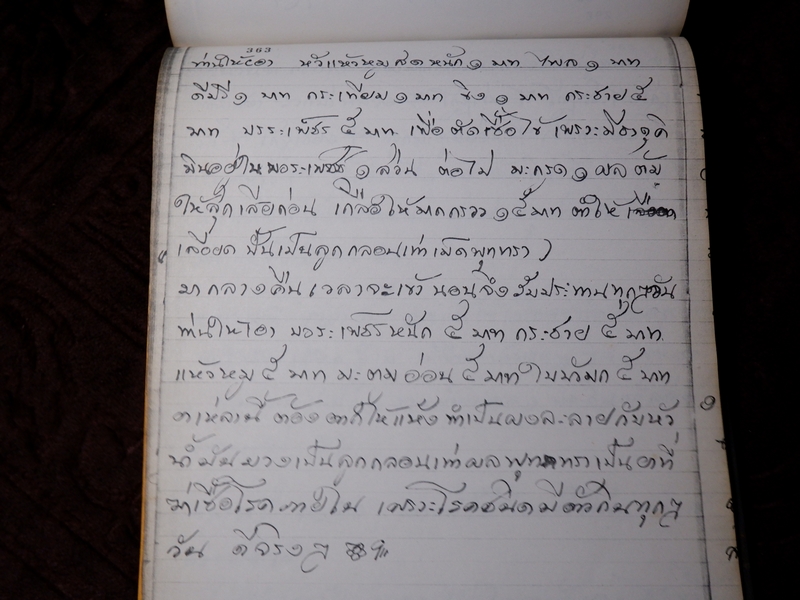 363
ท่านให้เอา หัวแห้วหมูสด หนัก ๑ บาท ไพล ๑ บาท
ดีปลี ๑ บาท กระเทียม ๑ บาท ขิง ๑ บาท กระชาย ๕
บาท บรระเพ็ชร ๕ บาท เพื่อ ไข้ เพราะมีธาตุดิ
นอยู่ในบอระเพชร์ ๑ ส่วน ต่อไป มะกรูด ๑ ผล ต้ม
ให้สุกเสียก่อน เกลือให้มากกว่า ๑๕ บาท ตำให้
เลอียด ปั้นเป็นลูกกลอนเท่าเม็ดพุททรา )
มากลางคืน เวลาจะเข้านอนจึงรับประทานทุกๆวัน
ท่านให้เอา บอระเพชรหนัก ๕ บาท กระชาย ๕ บาท
แห้วหมู ๕ บาท มะตูมอ่อน ๕ บาท ใบ ๕ บาท
เหล่านี้ ต้องตากให้แห้ง ทำเป็นผงละลายกับหัว
น้ำมันยางเป็นลูกกลอนเท่าผลพุททราเป็นยาที่
ฆ่าเชื้อโรคภายใน เพราะโรคชนิดมีตัวกินทุกๆ
วัน ดีจริงๆ